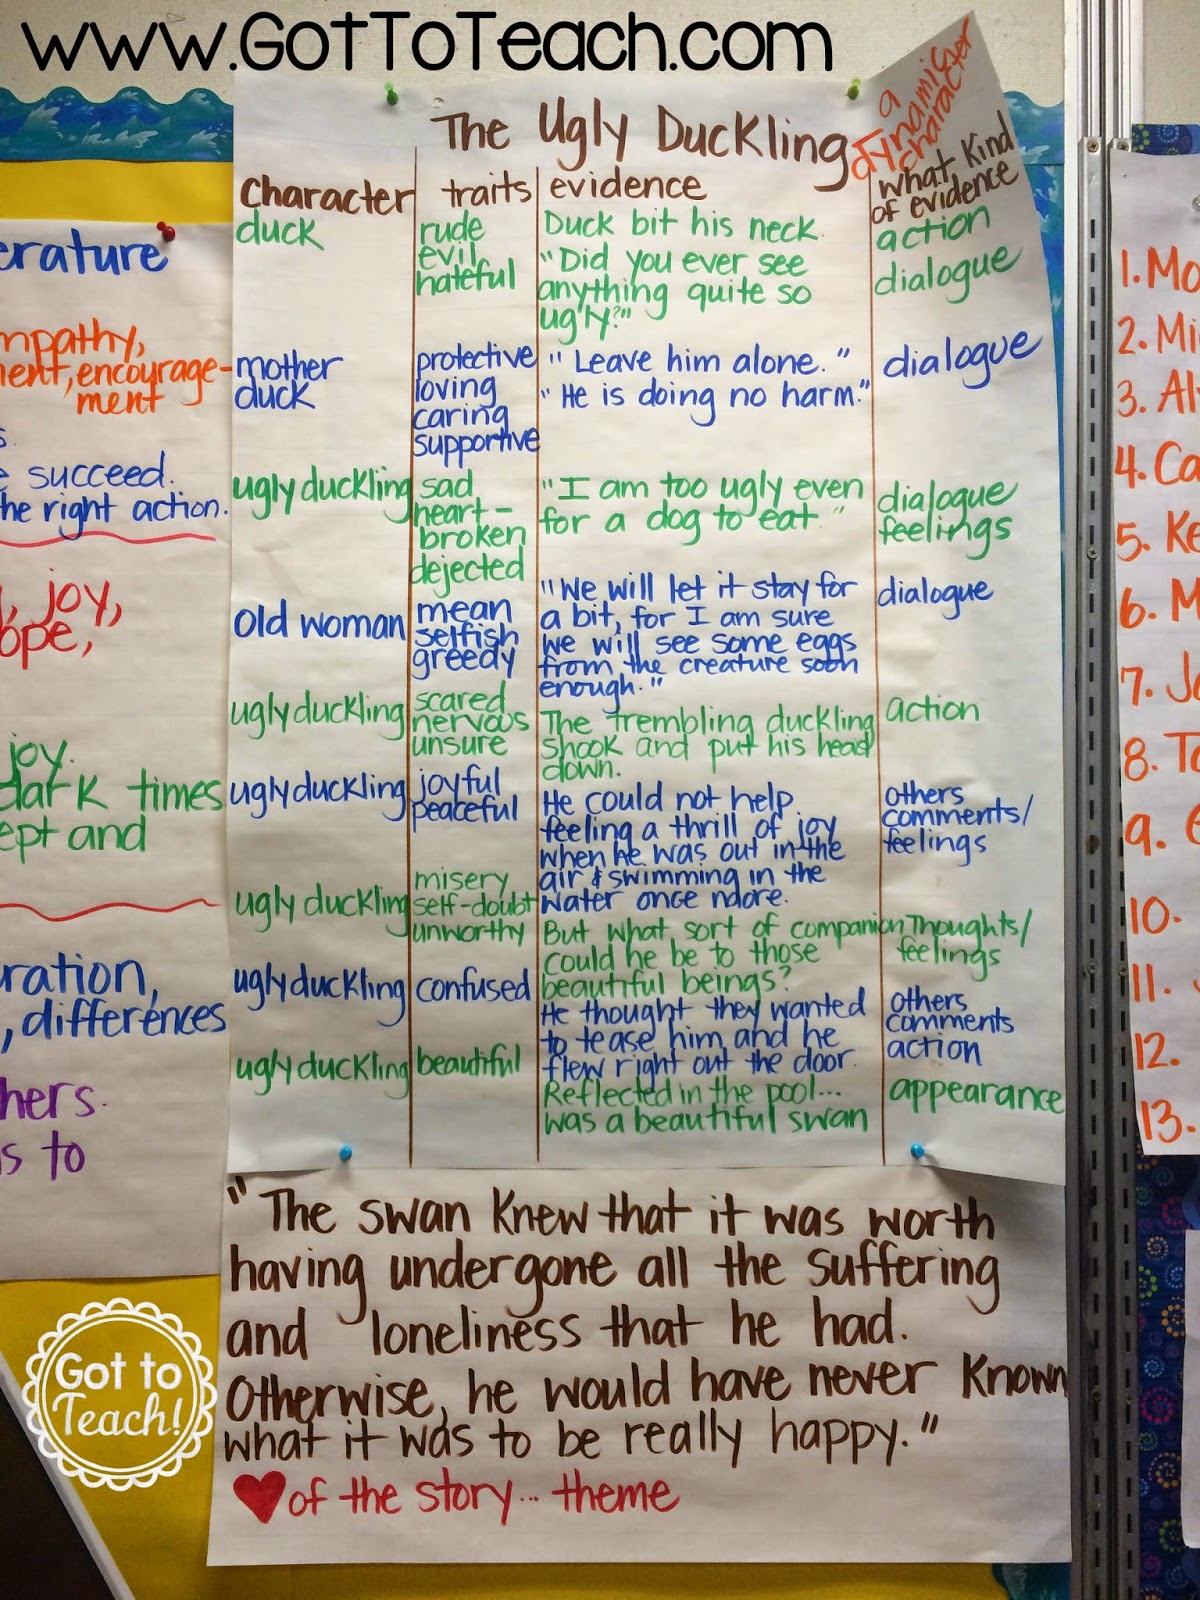 www.GotToTeach.com
The Ugly Duckling
a
dynamic
character
Character traits evidence what kind of evidence
duck
rude
evil
hateful
Duck bit his neck.
"Did you ever see
anything quite so
ugly?"
action
dialogue
mother
duck
protective
loving
caring
supportive
"Leave him alone."
"He is doing no harm."
dialogue
ugly duckling
sad
heart-
broken
dejected
"I am too ugly even
for a dog to eat."
dialogue
feelings
old woman
mean
selfish
greedy
"We will let it stay for
a bit, for I am sure
we will see some eggs
from the creature soon
enough."
dialogue
ugly duckling
scared
nervous
unsure
The trembling duckling
shook and put his head
down.
action
ugly duckling
joyful
peaceful
He could not help
feeling a thrill of joy
when he was out in the
air & swimming in the
water once more.
others
comments/
feelings
ugly duckling
misery
self-doubt
unworthy
But what sort of companion
could he be to those
beautiful beings?
Thoughts/
feelings
ugly duckling
confused
He thought they wanted
to tease him and he
flew right out the door.
others
comments
action
ugly duckling
beautiful
Reflected in the pool...
was a beautiful swan
appearance
"The swan knew that it was worth
having undergone all the suffering
and loneliness that he had.
Otherwise, he would have never known
what it was to be really happy."
♥ of the story... theme
erature
mpathy,
ment, encourage-
ment
s.
e succeed.
he right action.
, joy,
ope,
joy.
dark times
ept and
uration,
, differences
hers.
s to
1. Mo
2. Mi
3. Al
4. Ca
5. Ke
6. M
7. Jo
8. To
9.
10.
11.
12.
13.
Got to
Teach!